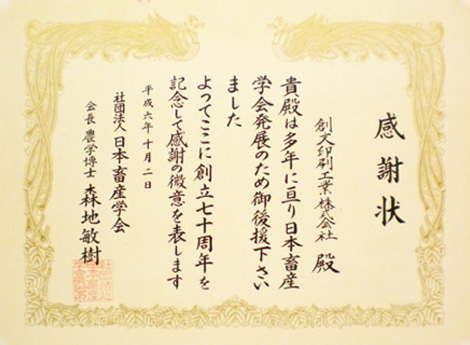 感謝状
創文印刷工業株式会社 殿
貴殿は多年に亘り日本畜産
学会発展のため御後援下さい
ました
よってここに創立七十周年を
記念して感謝の微意を表します
平成六年十月二日
社団法人日本畜産学会
会長 農学博士 森地敏樹